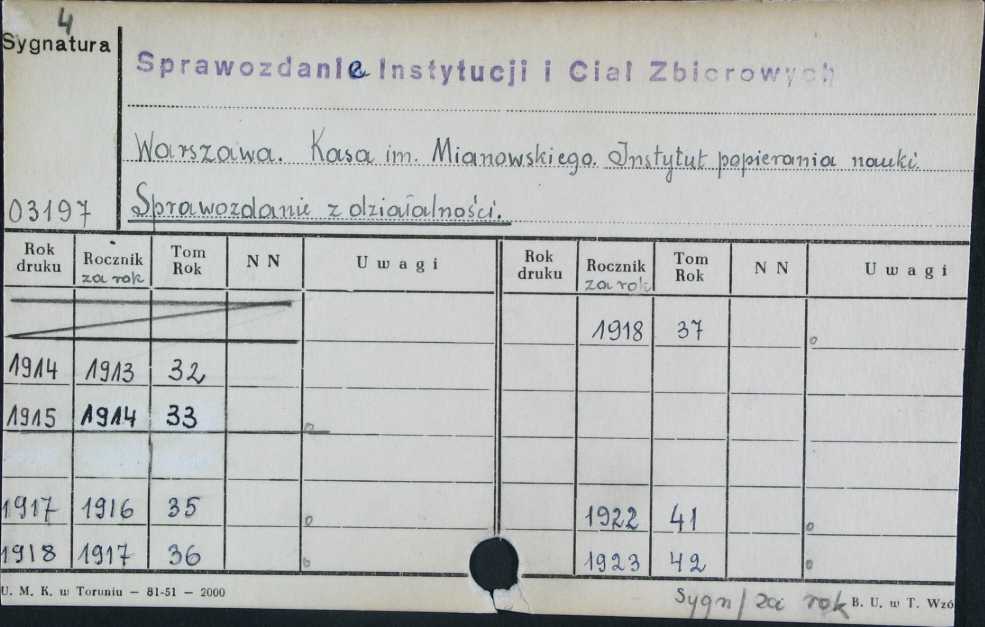 4
Sygnatura
Sprawozdanie Instytucji i Cial Zbiorowych
Warszawa. Kasa im. Mianowskiego. Instytut popierania nauki.
03197 Sprawozdanie z działalności.
Rok druku Rocznik za rok Tom Rok N N Uwagi Rok druku Rocznik za rok Tom Rok N N Uwagi
1918 37
1914 1913 32
1915 1914 33
1917 1916 35 1922 41
1918 1917 36 1923 42
U. M. K. w Toruniu — 81-51 — 2000
Sygn/za rok B. U. w T. Wzó